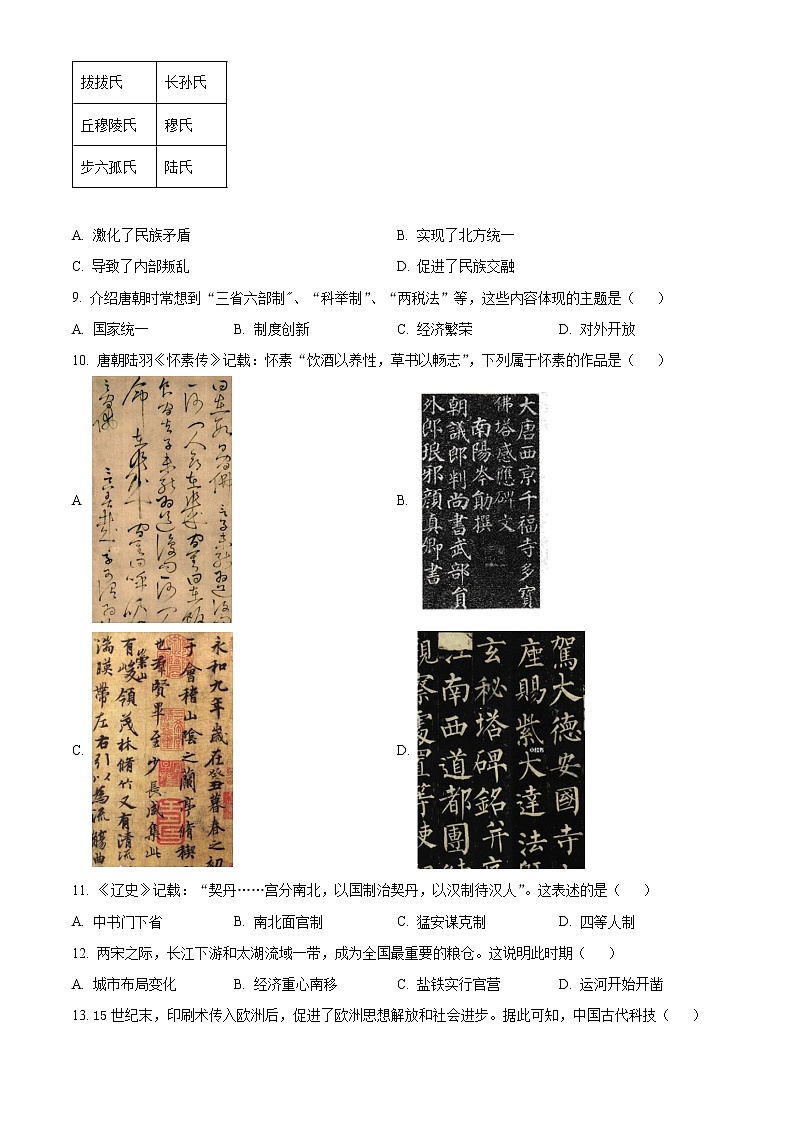 拔拔氏 长孙氏
丘穆陵氏 穆氏
步六孤氏 陆氏
A. 激化了民族矛盾 B. 实现了北方统一
C. 导致了内部叛乱 D. 促进了民族交融
9. 介绍唐朝时常想到“三省六部制”、“科举制”、“两税法”等，这些内容体现的主题是（ ）
A. 国家统一 B. 制度创新 C. 经济繁荣 D. 对外开放
10. 唐朝陆羽《怀素传》记载：怀素“饮酒以养性，草书以畅志”，下列属于怀素的作品是（ ）
A
B.
大唐西京千福寺多寶
佛塔感應碑文
南陽岑勛撰
朝議郎判尚書武部員
外郎琅邪顏真卿書
C.
永和九年歲在癸丑暮春之初
于會稽山陰之蘭亭脩稧
也羣賢畢至少長咸集此
有崇山峻領茂林脩竹又有清流
湍暎帶左右引以為流觴曲
D.
駕大德安國寺
座賜紫大達法
玄秘塔碑銘并
江南西道都團
觀察處置等使
11. 《辽史》记载：“契丹……宫分南北，以国制治契丹，以汉制待汉人”。这表述的是（ ）
A. 中书门下省 B. 南北面官制 C. 猛安谋克制 D. 四等人制
12. 两宋之际，长江下游和太湖流域一带，成为全国最重要的粮仓。这说明此时期（ ）
A. 城市布局变化 B. 经济重心南移 C. 盐铁实行官营 D. 运河开始开凿
13. 15 世纪末，印刷术传入欧洲后，促进了欧洲思想解放和社会进步。据此可知，中国古代科技（ ）